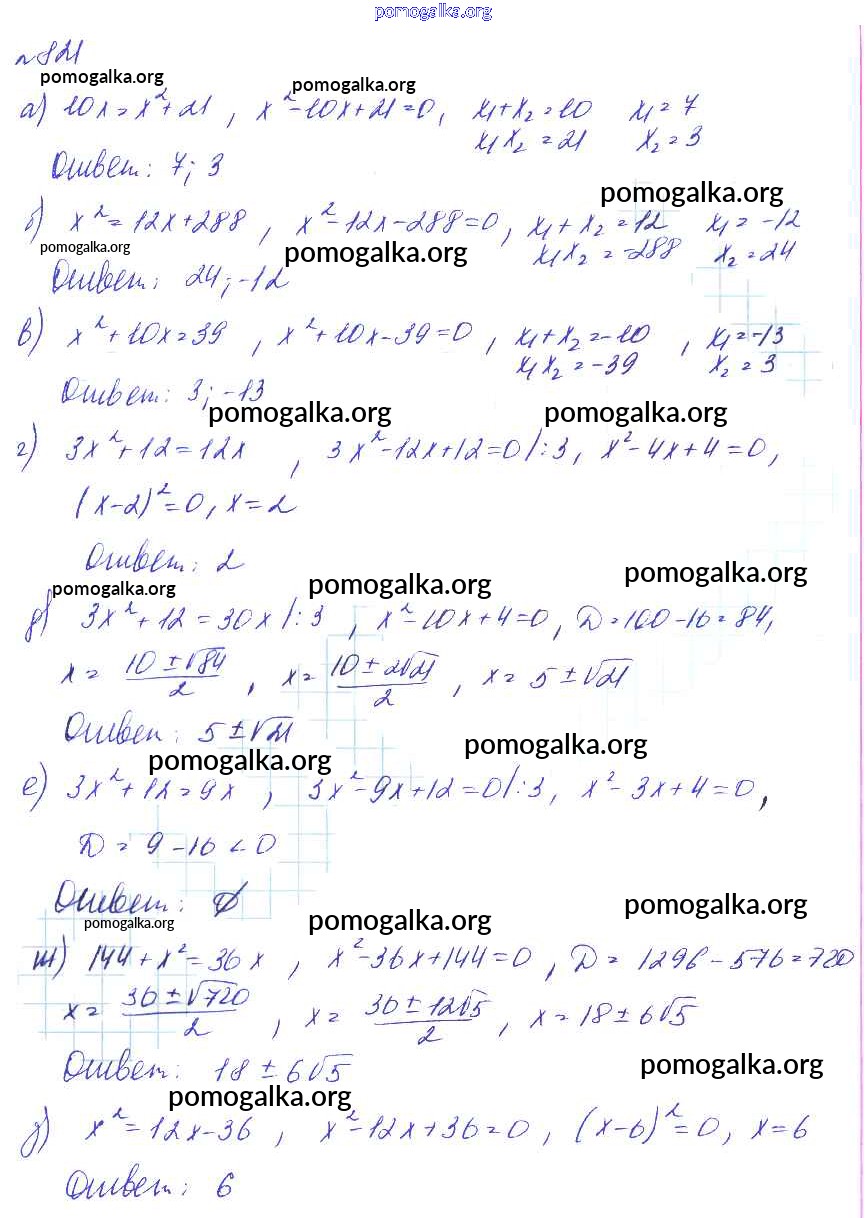 pomogalka.org
№821
pomogalka.org pomogalka.org
а) 10x = x²+21 , x²-10x+21=0, x₁+x₂=10 x₁=7
x₁x₂=21 x₂=3
Ответ: 7; 3
pomogalka.org
б) x²=12x+288 , x²-12x-288=0, x₁+x₂=12 x₁=-12
pomogalka.org pomogalka.org x₁x₂=-288 x₂=24
Ответ: 24; -12
в) x²+10x=39 , x²+10x-39=0 , x₁+x₂=-10 , x₁=-13
x₁x₂=-39 x₂=3
Ответ: 3; -13
pomogalka.org pomogalka.org
г) 3x²+12=12x , 3x²-12x+12=0/:3, x²-4x+4=0,
(x-2)²=0, x=2
Ответ: 2
pomogalka.org pomogalka.org pomogalka.org
д) 3x²+12=30x/:3 , x²-10x+4=0, D=100-16=84,
x= (10±√84)/2 , x= (10±2√21)/2 , x= 5±√21
Ответ: 5±√21
pomogalka.org pomogalka.org
е) 3x²+12=9x , 3x²-9x+12=0/:3, x²-3x+4=0,
D = 9-16<0
Ответ: ∅
pomogalka.org pomogalka.org pomogalka.org
ж) 144+x²=36x , x²-36x+144=0 , D= 1296-576=720
x= (36±√720)/2 , x= (36±12√5)/2 , x=18±6√5
Ответ: 18±6√5
pomogalka.org pomogalka.org
з) x²=12x-36 , x²-12x+36=0 , (x-6)²=0, x=6
Ответ: 6